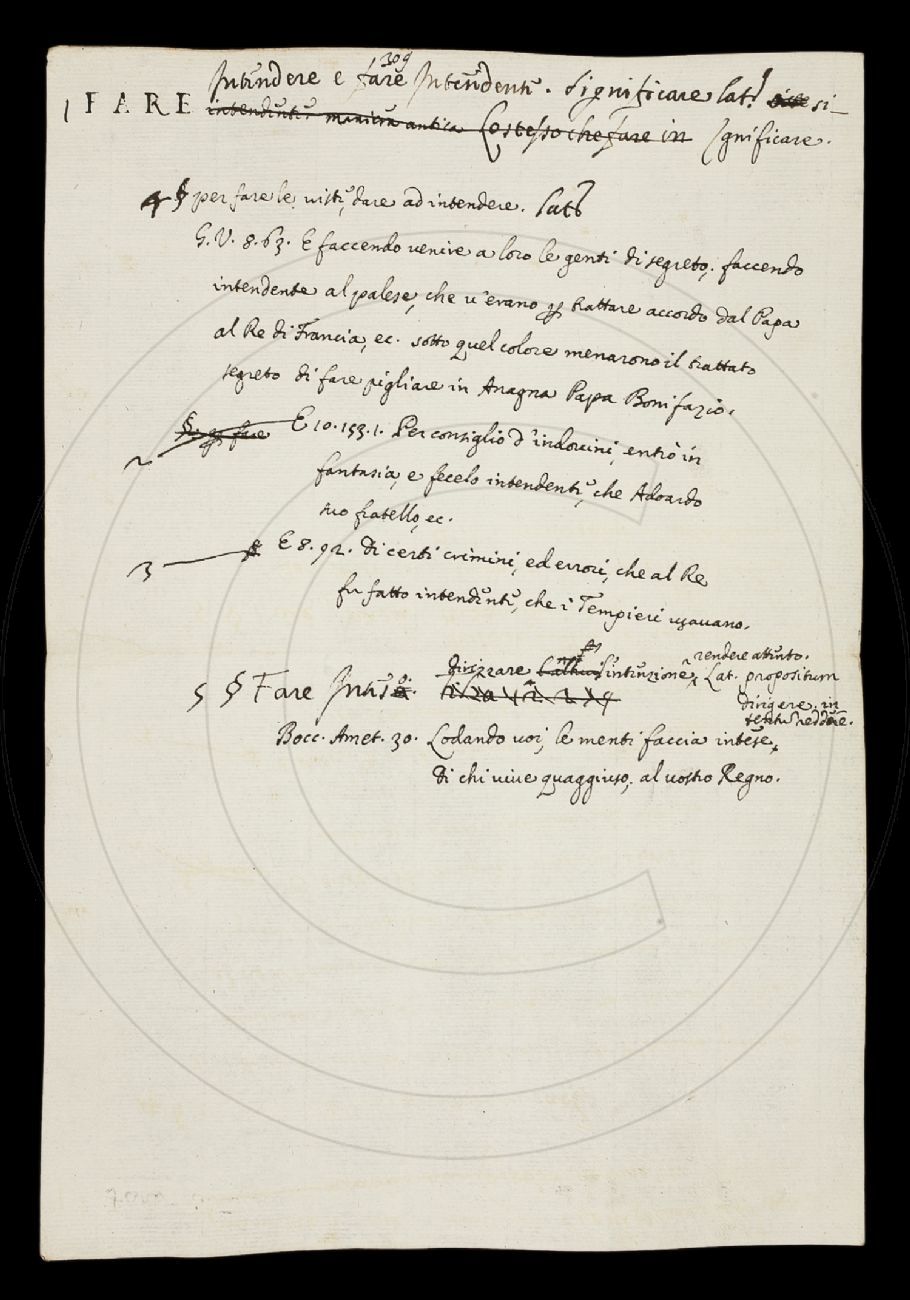 309
1 FARE Intendere e fare Intendente. Significare lat. si-
intendente maniera antica Lo stesso che fare in gnificare.
4 § per fare le viste, dare ad intendere. lat.
G. V. 8. 63. E faccendo venire a loro le genti di segreto; faccendo
intendente al palese, che v'erano p trattare accordo dal Papa
al Re di Francia, ec. sotto quel colore menarono il trattato
segreto di fare pigliare in Anagna Papa Bonifazio.
2 §. p fare E 10. 153. 1. Per consiglio d'indovini, entrò in
fantasia, e fecelo intendente, che Adoardo
suo fratello, ec.
3 § E 8. 92. di certi crimini, ed errori, che al Re
fu fatto intendente, che i Tempieri usavano.
rendere attento.
5 § Fare Inteso. dirizzare l'intenzione, Lat. propositum
dirigere, in
reddere.
Bocc. Amet. 30. Lodando voi, le menti faccia intese,
di chi vive quaggiuso, al vostro Regno.